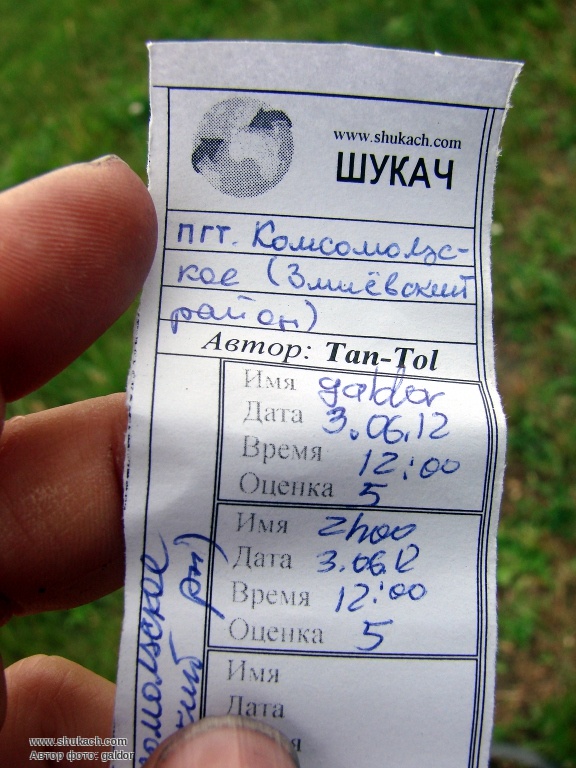 www.shukach.com
ШУКАЧ
пгт. Комсомольс-
кое (Змиёвский
район)
Автор: Tan-Tol
Имя galdor
Дата 3.06.12
Время 12:00
Оценка 5
Имя zhoo
Дата 3.06.12
Время 12:00
Оценка 5
Имя
Дата
я
омольское
кий рн)
www.shukach.com
Автор фото: galdor